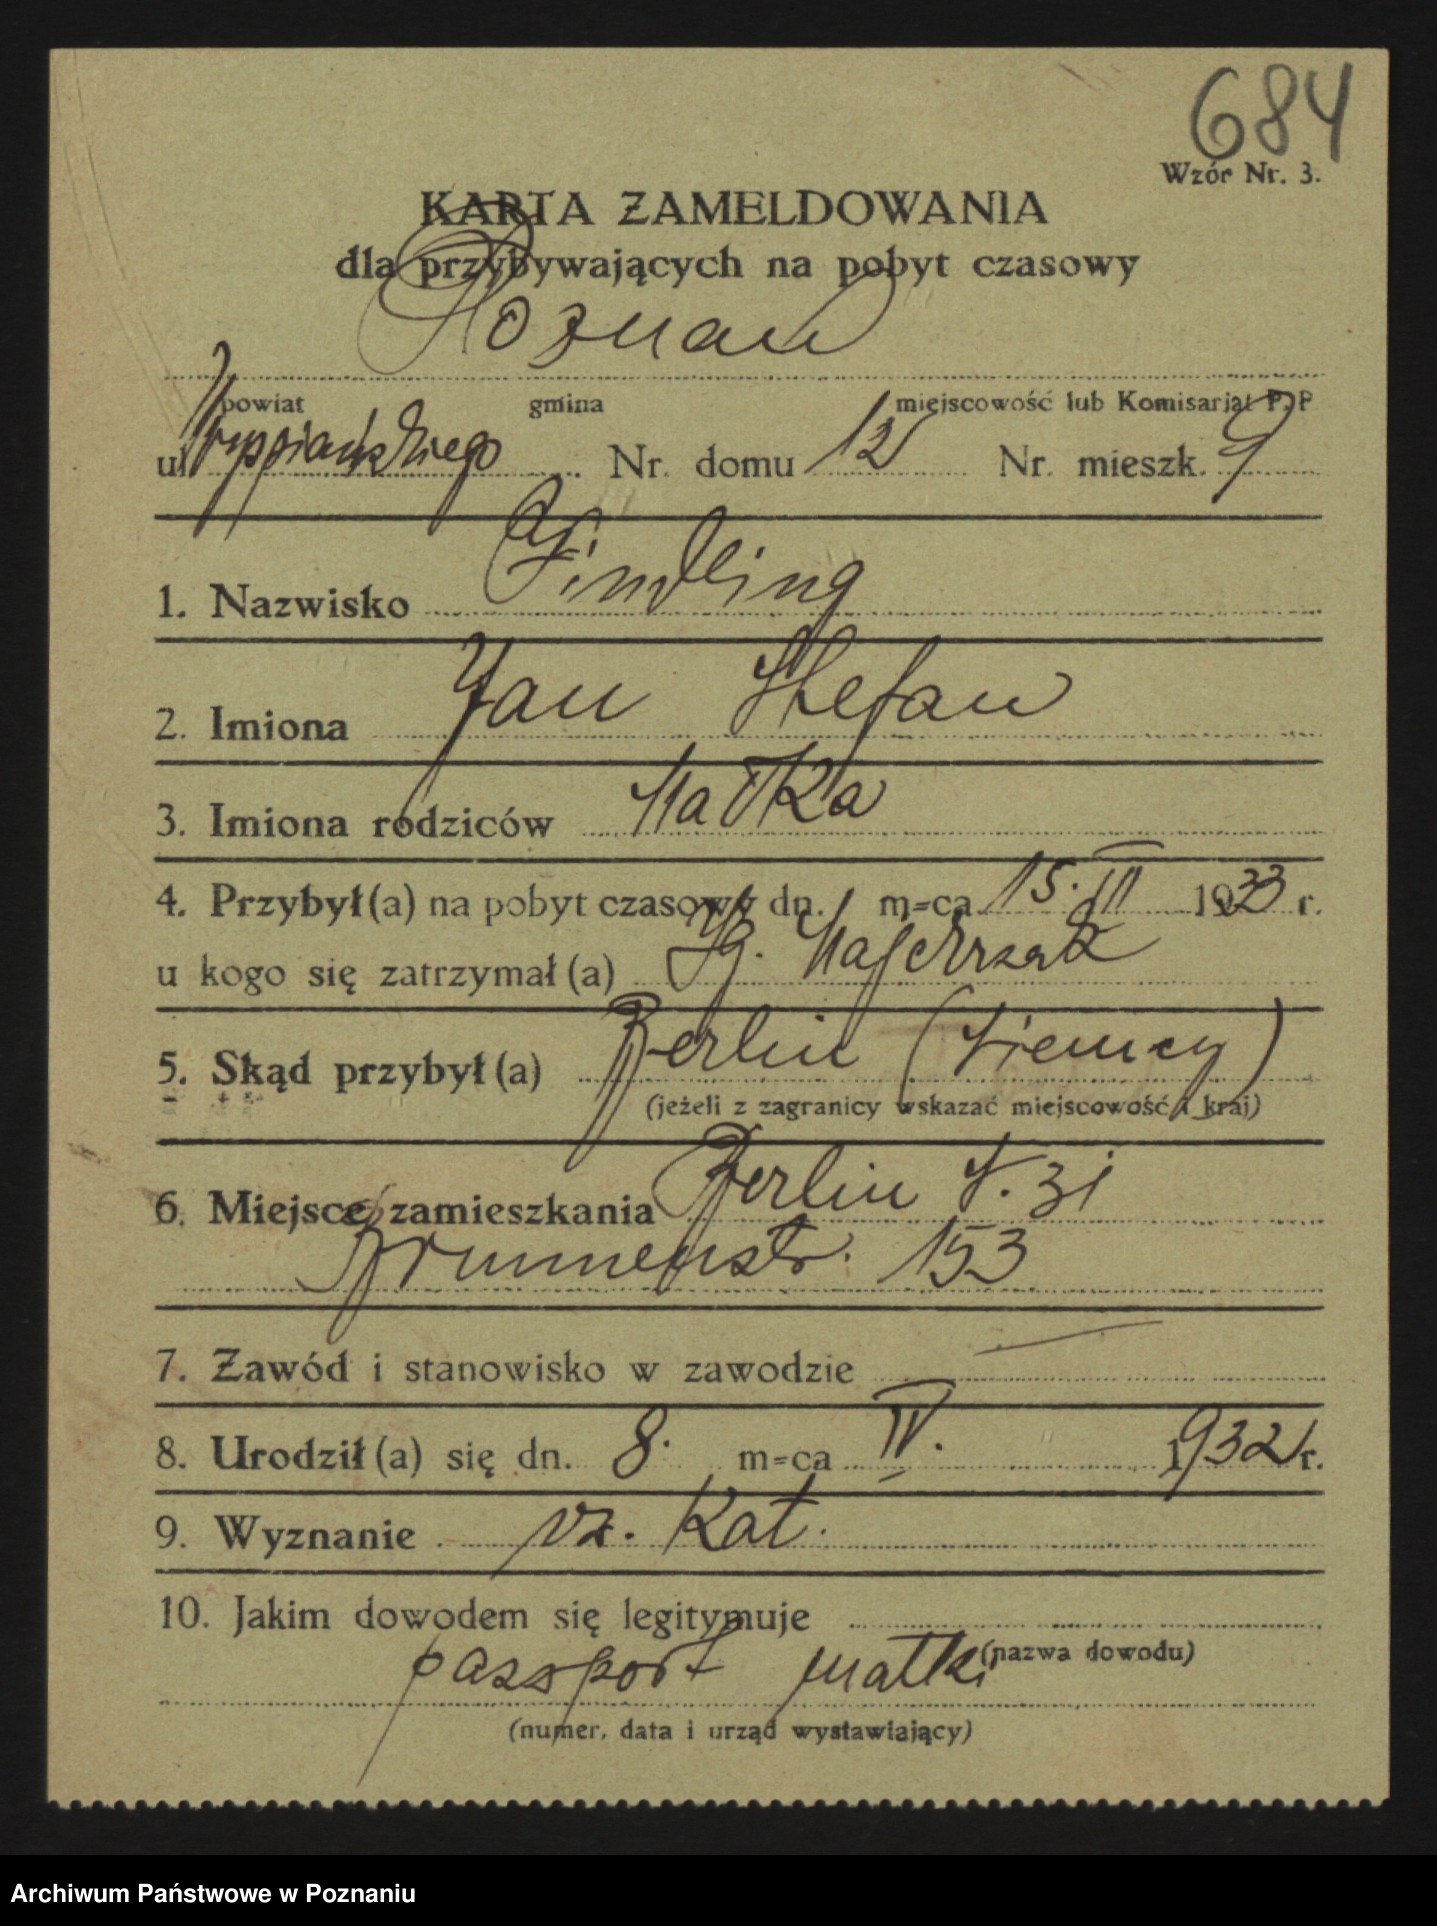 684
Wzór Nr. 3.
KARTA ZAMELDOWANIA
dla przybywających na pobyt czasowy
Poznań
powiat gmina miejscowość lub Komisarjat P. P
ul. Wyspiańskiego Nr. domu 12 Nr. mieszk. 9
1. Nazwisko Findling
2. Imiona Jan Stefan
3. Imiona rodziców Matka
4. Przybył(a) na pobyt czasowy dn. m-ca 15. III 1933 r.
u kogo się zatrzymał(a) Ig. Majchrzak
5. Skąd przybył(a) Berlin (Niemcy)
(jeżeli z zagranicy wskazać miejscowość i kraj)
6. Miejsce zamieszkania Berlin N. 31
Brunnenstr. 153
7. Zawód i stanowisko w zawodzie
8. Urodził(a) się dn. 8. m-ca IV. 1932 r.
9. Wyznanie rz. kat.
10. Jakim dowodem się legitymuje
(nazwa dowodu)
passport matki
(numer, data i urząd wystawiający)
Archiwum Państwowe w Poznaniu